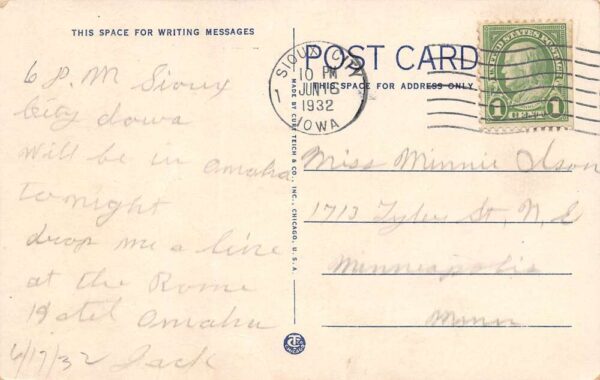 THIS SPACE FOR WRITING MESSAGES
6 P.M Sioux
City Iowa
Will be in Omaha
tonight
drop me a line
at the Rome
Hotel Omaha
6/17/32 Jack
MADE BY CURT TEICH & CO., INC., CHICAGO, U.S.A.
POST CARD
THIS SPACE FOR ADDRESS ONLY
SIOUX CITY
10 PM
JUN 16
1932
IOWA
1
UNITED STATES POSTAGE
1 CENT 1
Miss Minnie Olson
1713 Tyler St, N.E
Minneapolis
Minn